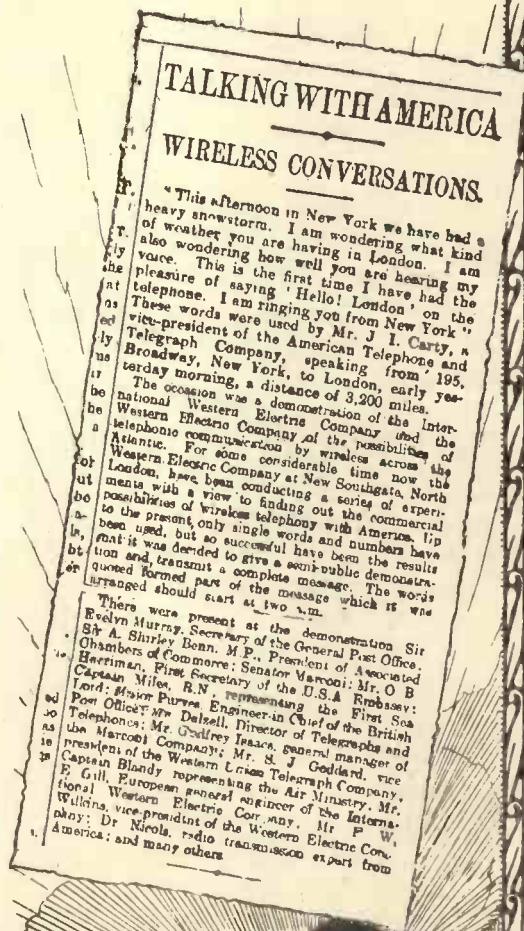 TALKING WITH AMERICA
WIRELESS CONVERSATIONS.
"This afternoon in New York we have had a
heavy snowstorm. I am wondering what kind
of weather you are having in London. I am
also wondering how well you are hearing my
voice. This is the first time I have had the
pleasure of saying 'Hello! London', on the
telephone. I am ringing you from New York"
These words were used by Mr. J I. Carty, a
vice-president of the American Telephone and
Telegraph Company, speaking from 195,
Broadway, New York, to London, early yes-
terday morning, a distance of 3,200 miles.
The occasion was a demonstration of the Inter-
national Western Electric Company and the
Western Electric Company of the possibilities of
telephonic communication by wireless across the
Atlantic. For some considerable time now the
Western Electric Company at New Southgate, North
London, have been conducting a series of experi-
ments with a view to finding out the commercial
possibilities of wireless telephony with America. Up
to the present, only single words and numbers have
been used, but so successful have been the results
that it was decided to give a semi-public demonstra-
tion and transmit a complete message. The words
quoted formed part of the message which it was
arranged should start at two a.m.
There were present at the demonstration Sir
Evelyn Murray, Secretary of the General Post Office,
Sir A. Shirley Benn, M.P., President of Associated
Chambers of Commerce; Senator Marconi; Mr. O B
Harriman, First Secretary of the U.S.A Embassy;
Captain Miles, R.N., representing the First Sea
Lord; Major Purves, Engineer-in Chief of the British
Post Office; Mr Dalzell, Director of Telegraphs and
Telephones; Mr. Godfrey Isaacs, general manager of
the Marconi Company; Mr. S. J Goddard, vice
president of the Western Union Telegraph Company,
Captain Blandy representing the Air Ministry, Mr.
E Gill, European general engineer of the Interna-
tional Western Electric Company, Mr F W.
Wilkins, vice-president of the Western Electric Com-
pany; Dr Nicols, radio transmission expert from
America; and many others